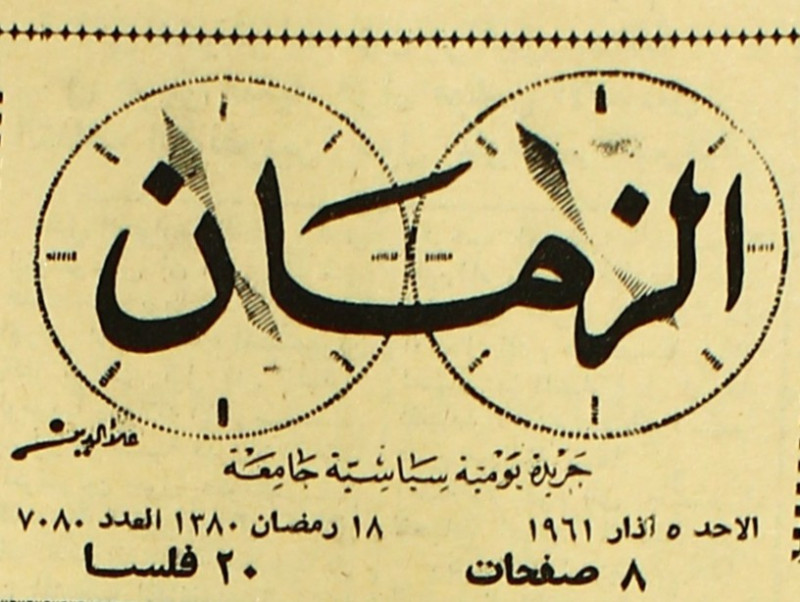 الزمان
علاءالدين
جَريدة يَوْميّة سِيَاسِيّة جَامِعَة
الاحد ٥ آذار ١٩٦١ ١٨ رمضان ١٣٨٠ العدد ٧٠٨٠
٨ صفحات ٢٠ فلسا